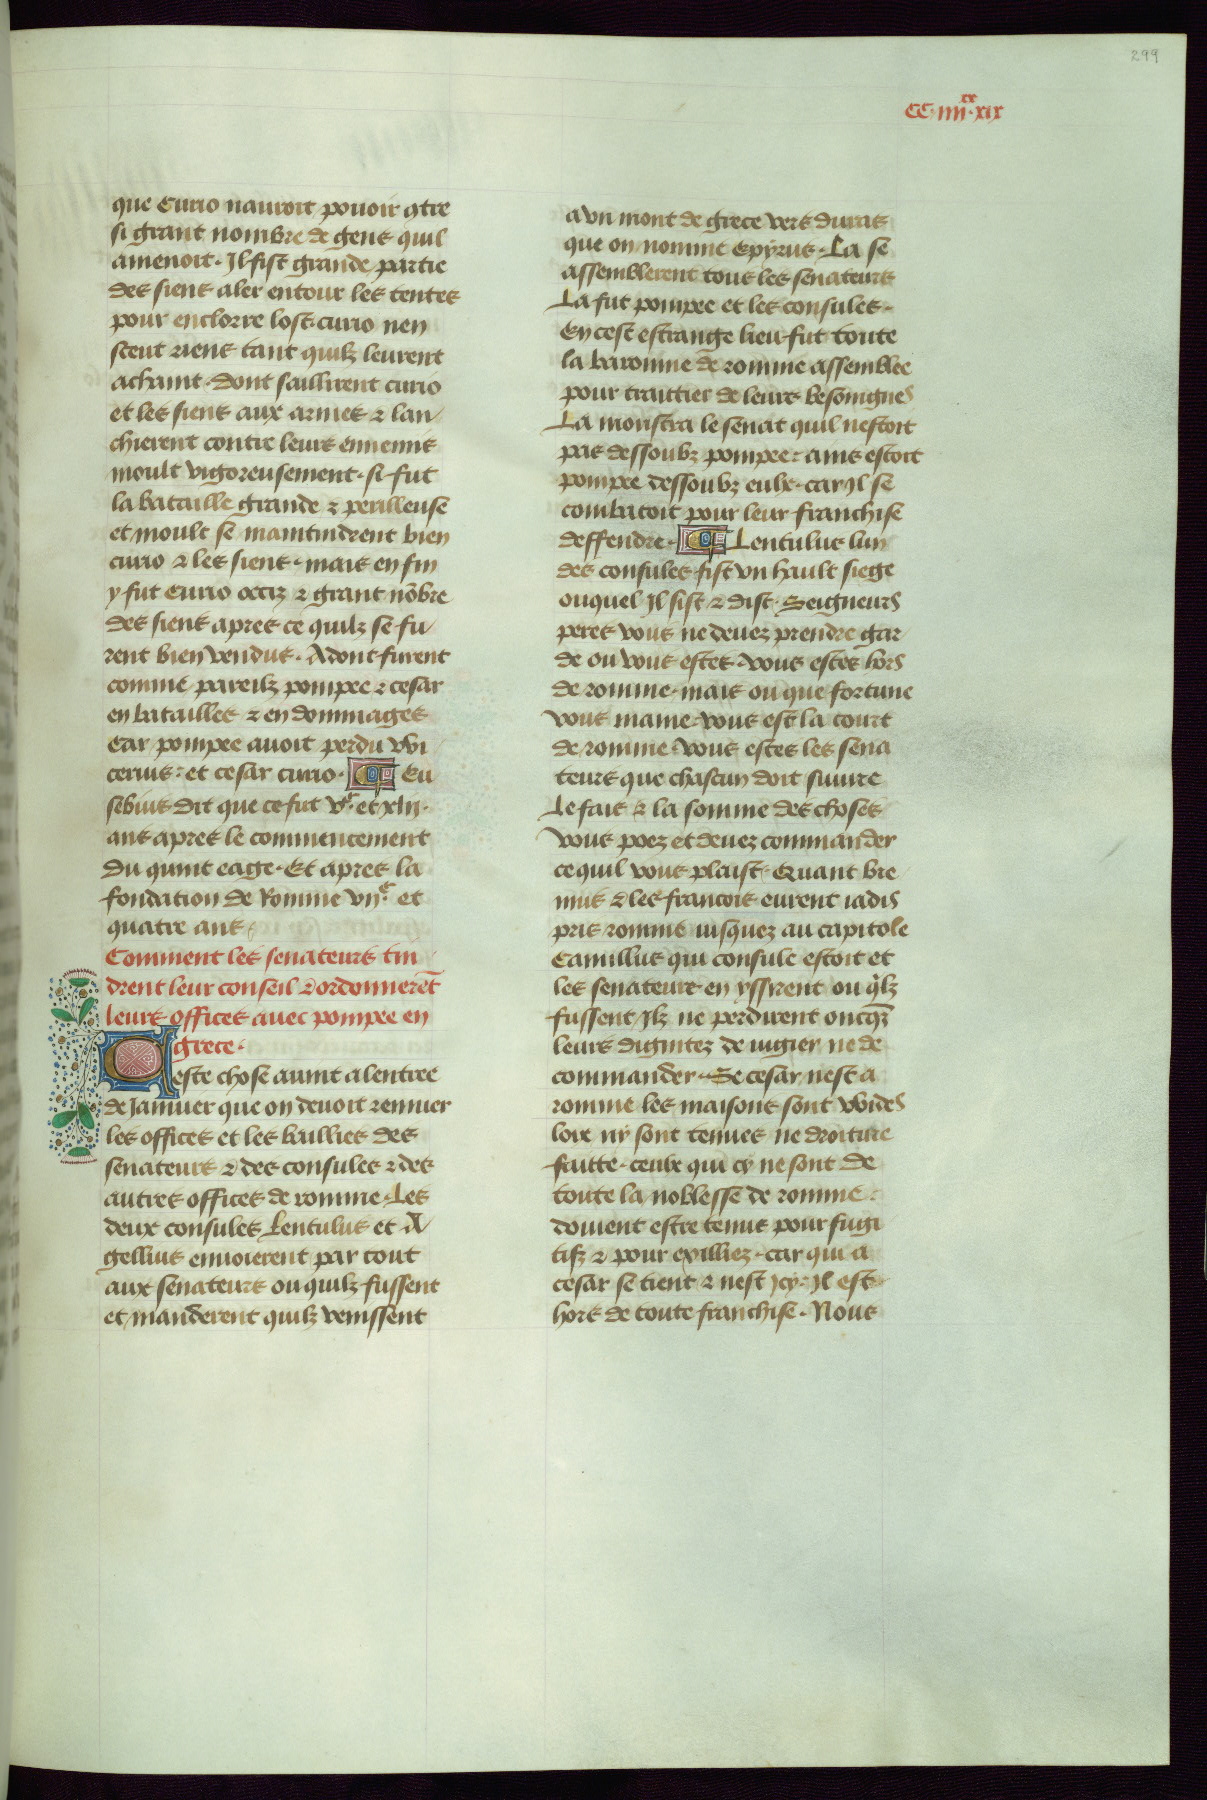 299
CC·iiii^xx·xix
que Curio nauroit pouoir 9tre
si grant nombre de gens quil
amenoit. Il fist grande partie
des siens aler entour les tentes
pour enclorre lost. curio nen
sceut riens tant quilz leurent
achaint. dont saillirent curio
et les siens aux armes ⁊ lan
chierent contre leurs ennemis
moult vigoreusement. si fut
la bataille grande ⁊ perilleuse
et moult se maintindrent bien
curio ⁊ les siens. mais en fin
y fut Curio occiz ⁊ grant nōbre
des siens apres ce quilz se fu
rent bien vendus. Adont furent
comme pareilz pompee ⁊ cesar
en batailles ⁊ en dommages
Car pompee auoit perdu wl
cerius: et cesar curio. Eu
sebius dit que ce fut v^c. et xlii.
ans apres le commencement
du quint eage. Et apres la
fondation de Romme vii^c. et
quatre ans.
Comment les senateurs tin
drent leur conseil ⁊ ordonnerēt
leurs offices auec pompee en
grece.
Ceste chose auint a lentree
de Januier que on deuoit renuier
les offices et les baillies des
senateurs ⁊ des consules ⁊ des
autres offices de romme. Les
deux consules Lentulus et A
gellius enuoierent par tout
aux senateurs ou quilz fussent
et manderent quilz venissent
a vn mont de grece vers duras
que on nomme Epyrus. La se
assemblerent tous les senateurs
La fut pompee et les consules.
En cest estrange lieu fut toute
la baronnie de romme assemblee
pour traittier de leurs besoingnes
La monstra le senat quil nestoit
pas dessoubz pompee: ains estoit
pompee dessoubz eulx. car Il se
combatoit pour leur franchise
deffendre. Lentulus lun
des consules fist vn hault siege
ouquel Il sist ⁊ dist. Seigneurs
peres vous ne deuez prendre gar
de ou vous estes. vous estes hors
de romme. mais ou que fortune
vous maine. vous est la court
de romme. Vous estes les sena
teurs que chascun doit suiure
Le fais ⁊ la somme des choses
vous poez et deuez commander
ce quil vous plaist. Quant bre
nus ⁊ les francois eurent iadis
pris romme iusquez au capitole
Camillus qui consule estoit et
les senateurs en yssirent ou q̄lz
fussent Ilz ne perdirent oncq̄s
leurs dignitez de iugier ne de
commander. Se cesar nest a
romme les maisons sont wides
loix ny sont tenues ne droiture
faitte. ceulx qui cy ne sont de
toute la noblesse de romme:
doiuent estre tenus pour fugi
tifz ⁊ pour exilliez. car qui a
cesar se tient ⁊ nest Icy: Il est
hors de toute franchise. Nous